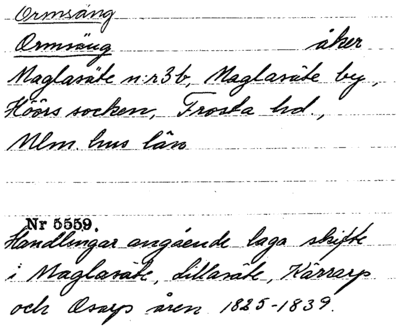 Ormsäng
Ormsäng åker
Maglasäte n:r 3b, Maglasäte by,
Höörs socken, Frosta hd.,
Mlm. hus län
Nr 5559.
Handlingar angående laga skifte
i Maglasäte, Lillasäte, Kärrarp
och Osarp åren 1825-1839.